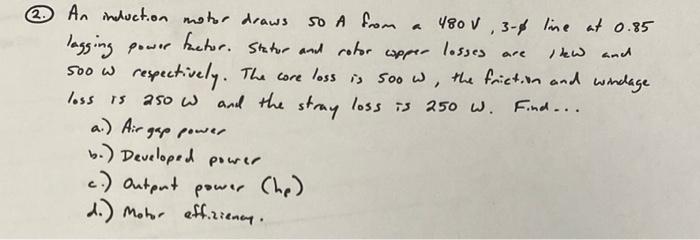 2. An induction motor draws 50 A from a 480 V, 3-ϕ line at 0.85
lagging power factor. Stator and rotor copper losses are 1 kW and
500 W respectively. The core loss is 500 W, the friction and windage
loss is 250 W and the stray loss is 250 W. Find...
a.) Air gap power
b.) Developed power
c.) Output power (hp)
d.) Motor efficiency.